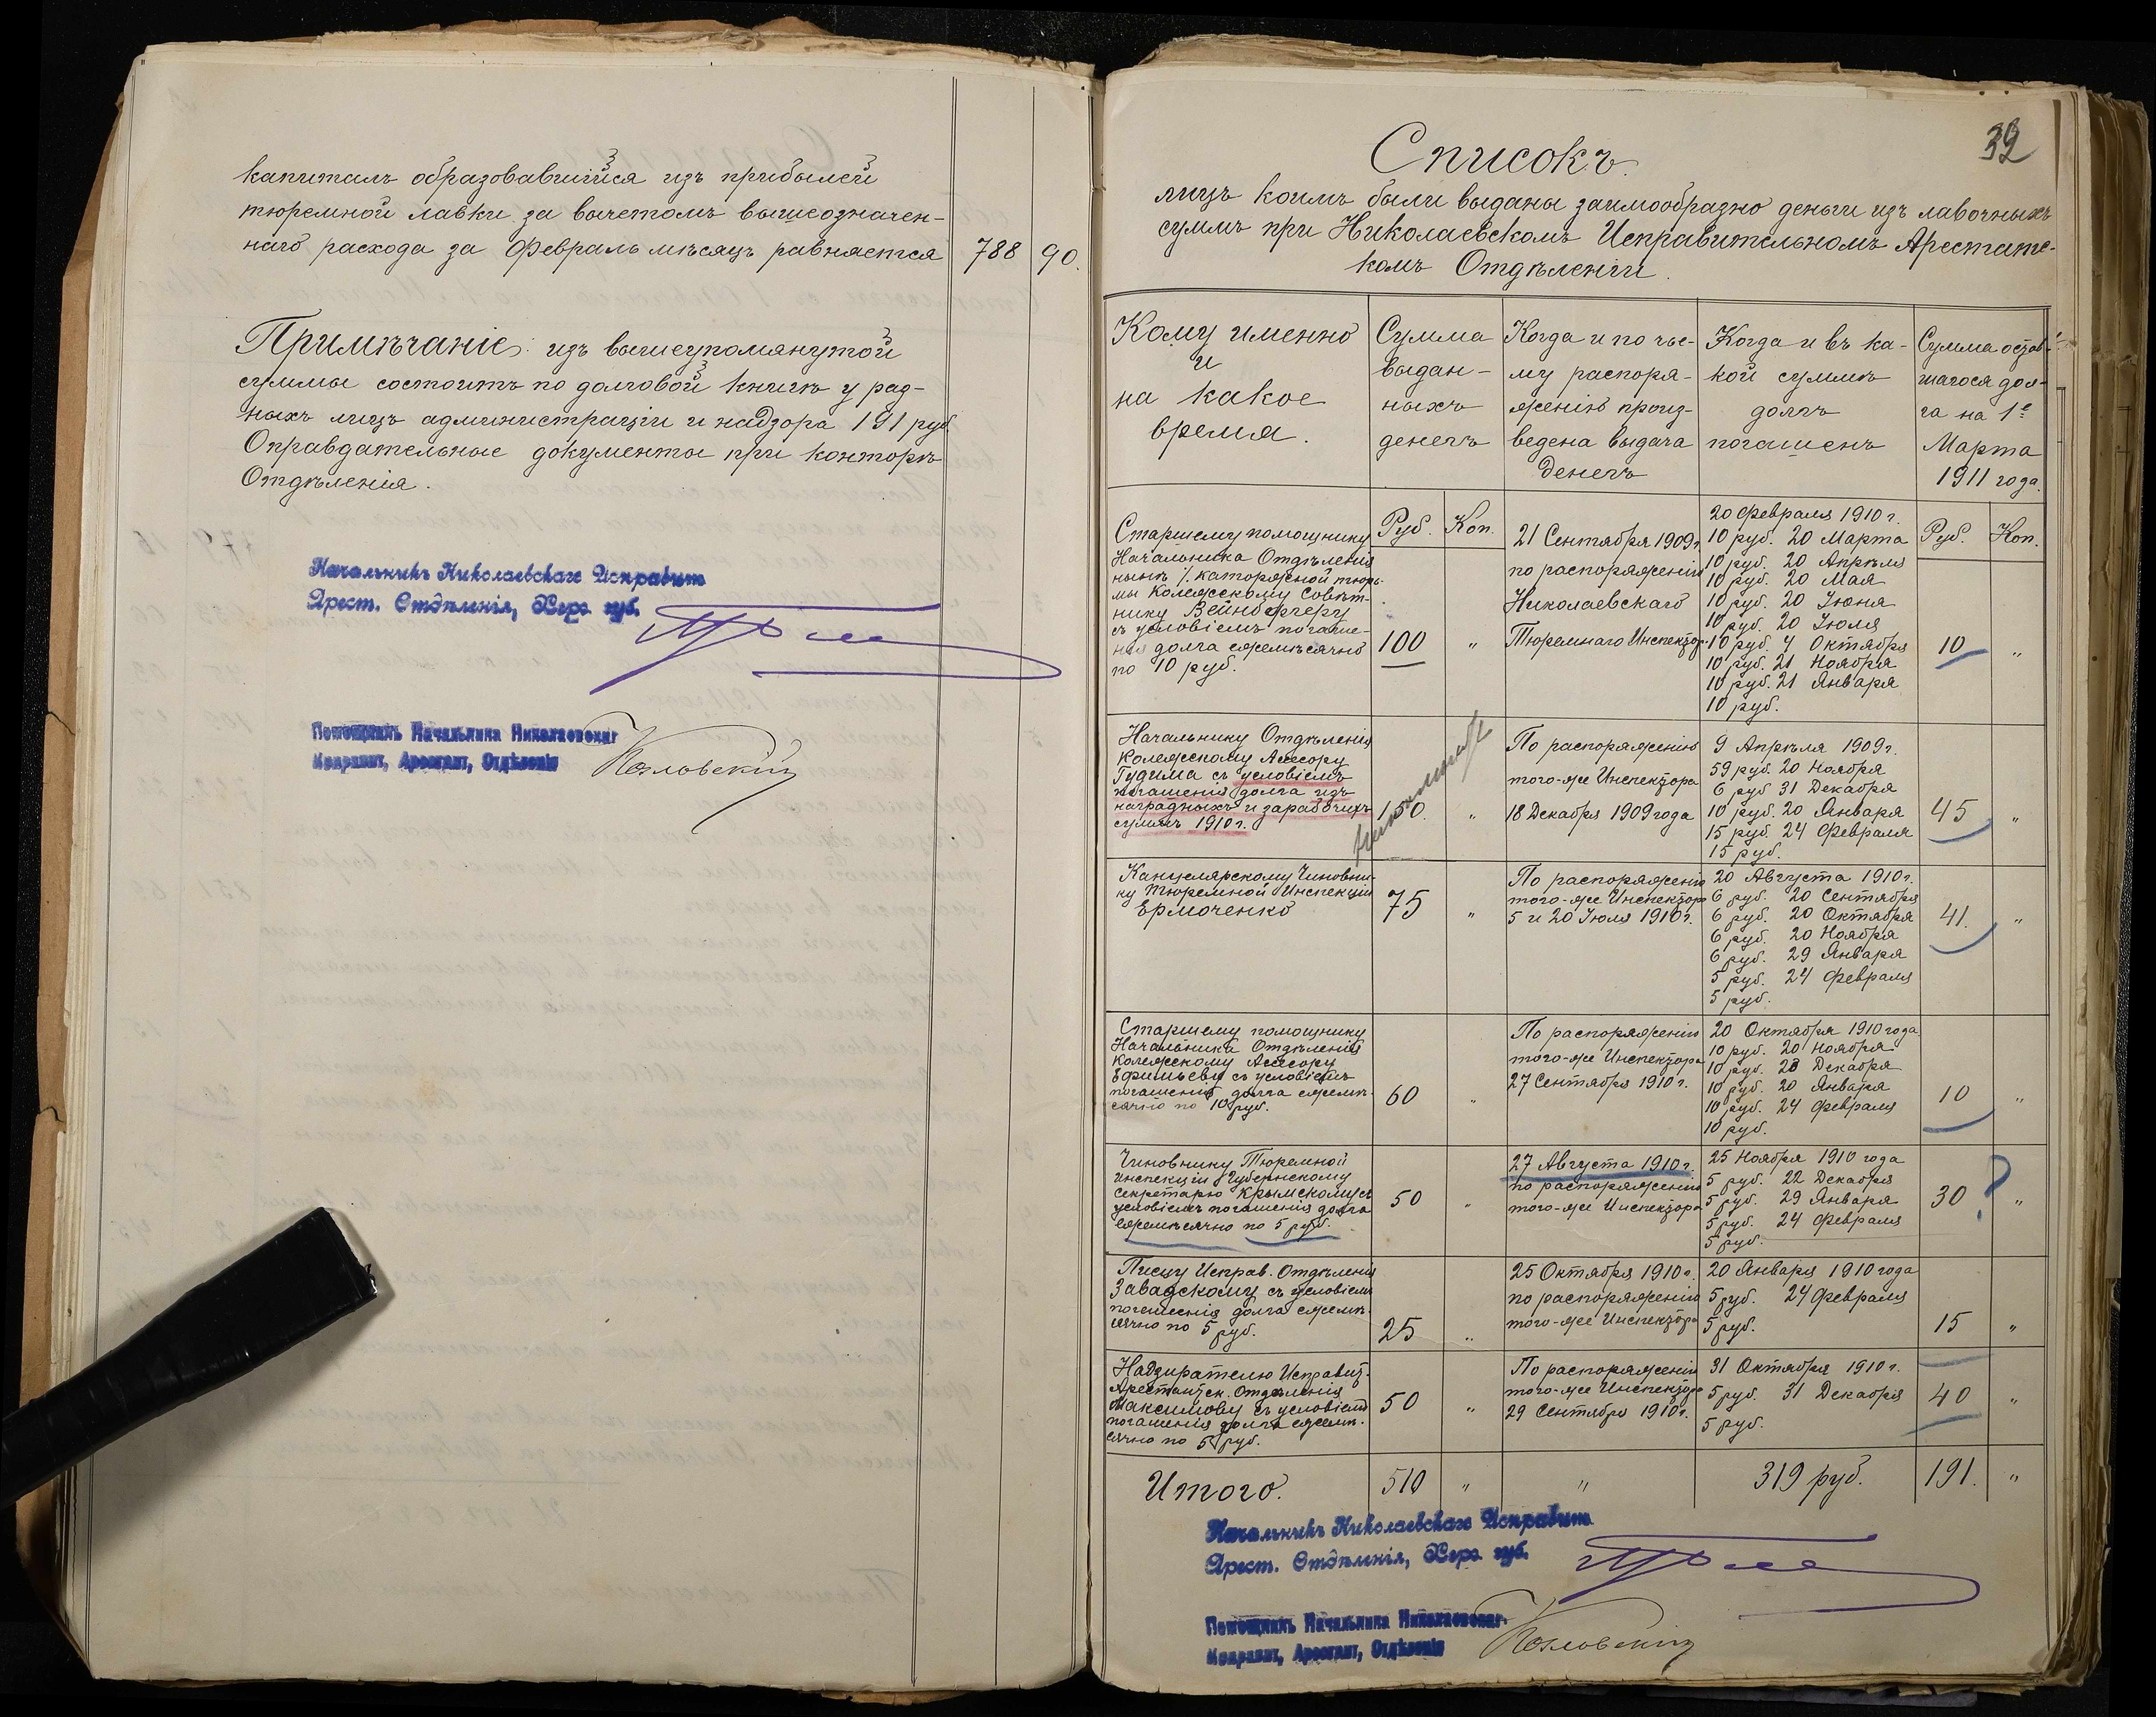 капиталъ образовавшійся изъ прибылей
тюремной лавки за вычетомъ вышеозначен-
наго расхода за Февраль мѣсяцъ равняется 788 90.
Примѣчаніе: изъ вышеупомянутой
суммы состоитъ по долговой книгѣ у раз-
ныхъ лицъ администраціи и надзора 191 руб.
Оправдательные документы при конторѣ
Отдѣленія.
Начальникъ Николаевскаго Исправит
Арест. Отдѣленія, Херс. губ.
Помощникъ Начальника Николаевскаг
Исправит, Арестант, Отдѣленія
Козловскій
39
Списокъ
лицъ коимъ были выданы заимообразно деньги изъ лавочныхъ
суммъ при Николаевскомъ Исправительномъ Арестант-
комъ Отдѣленіи.
Кому именно
и
на какое
время.
Сумма
выдан-
ныхъ
денегъ
Когда и по чье-
му распоря-
женію произ-
ведена выдача
денегъ
Когда и въ ка-
кой суммѣ
долгъ
погашенъ
Сумма остав-
шагося дол-
га на 1е
Марта
1911 года.
Руб. Коп.
Руб. Коп.
Старшему помощнику
Начальника Отдѣленія
нынѣ каторжной тюрь-
мы Коллежскому Совѣт-
нику Вейнбергеру
съ условіемъ погаше-
нія долга ежемѣсячно
по 10 руб.
100 "
21 Сентября 1909 г.
по распоряженію
Николаевскаго
Тюремнаго Инспектор.
20 Февраля 1910 г.
10 руб. 20 Марта
10 руб. 20 Апрѣля
10 руб. 20 Мая
10 руб. 20 Іюня
10 руб. 20 Іюля
10 руб. 4 Октября
10 руб. 21 Ноября
10 руб. 21 Января
10 руб.
10 "
Начальнику Отдѣленія
Колежскому Асесору
Гудима съ условіемъ
погашенія долга изъ
наградныхъ и заработныхъ
суммъ 1910 г.
150. "
По распоряженію
того-же Инспектора
18 Декабря 1909 года
9 Апрѣля 1909 г.
59 руб. 20 Ноября
6 руб 31 Декабря
10 руб. 20 Января
15 руб. 24 Февраля
15 руб.
45 "
Канцелярскому Чиновни-
ку Тюремной Инспекціи
Ермоченко
75 "
По распоряженію
того-же Инспектора
5 и 20 Іюля 1910 г.
20 Августа 1910 г.
6 руб. 20 Сентября
6 руб. 20 Октября
6 руб. 20 Ноября
6 руб. 29 Января
5 руб. 24 Февраля
5 руб.
41. "
Старшему помощнику
Начальника Отдѣленія
Колежскому Асесору
Ефимьеву съ условіемъ
погашенія долга ежемѣ-
сячно по 10 руб.
60 "
По распоряженію
того-же Инспектора
27 Сентября 1910 г.
20 Октября 1910 года
10 руб. 20 Ноября
10 руб. 28 Декабря
10 руб. 20 Января
10 руб. 24 Февраля
10 руб.
10 "
Чиновнику Тюремной
Инспекціи Губернскому
Секретарю Крымскому съ
условіемъ погашенія долга
ежемѣсячно по 5 руб.
50 "
27 Августа 1910 г.
по распоряженію
того-же Инспектора
25 Ноября 1910 года
5 руб. 22 Декабря
5 руб. 29 Января
5 руб. 24 Февраля
5 руб.
30 ? "
Писцу Исправ. Отдѣленія
Завадскому съ условіемъ
погашенія долга ежемѣ-
сячно по 5 руб.
25 "
25 Октября 1910 г.
по распоряженію
того-же Инспектора
20 Января 1910 года
5 руб. 24 Февраля
5 руб.
15 "
Надзирателю Исправит.
Арестантск. Отдѣленія
Максимову съ условіемъ
погашенія долга ежемѣ-
сячно по 5 руб.
50 "
По распоряженію
того-же Инспектора
29 Сентября 1910 г.
31 Октября 1910 г.
5 руб. 31 Декабря
5 руб.
40 "
Итого. 510 " " 319 руб. 191. "
Начальникъ Николаевскаго Исправит
Арест. Отдѣленія, Херс. губ.
Помощникъ Начальника Николаевскаг.
Исправит, Арестант, Отдѣленія
Козловскій